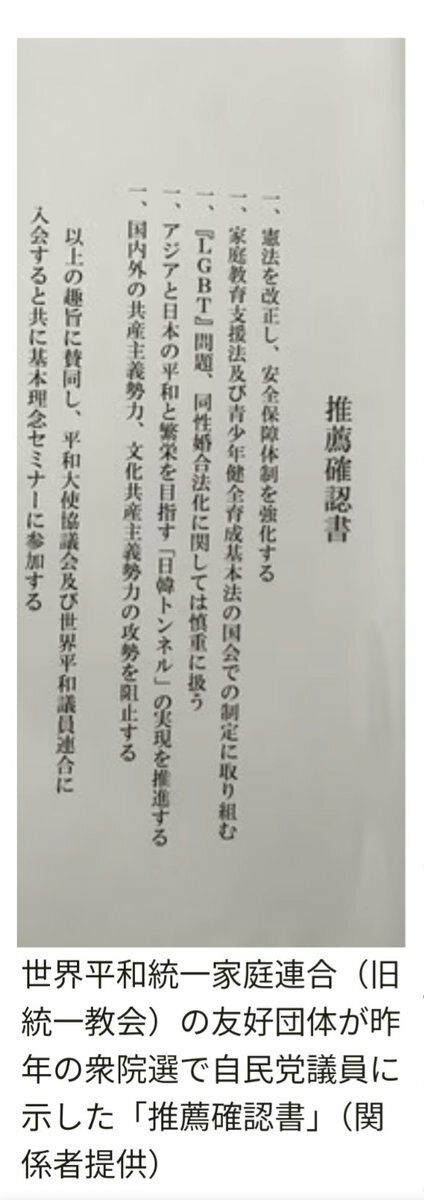 推薦確認書
一、憲法を改正し、安全保障体制を強化する
一、家庭教育支援法及び青少年健全育成基本法の国会での制定に取り組む
一、『LGBT』問題、同性婚合法化に関しては慎重に扱う
一、アジアと日本の平和と繁栄を目指す「日韓トンネル」の実現を推進する
一、国内外の共産主義勢力、文化共産主義勢力の攻勢を阻止する
以上の趣旨に賛同し、平和大使協議会及び世界平和議員連合に
入会すると共に基本理念セミナーに参加する
世界平和統一家庭連合（旧
統一教会）の友好団体が昨
年の衆院選で自民党議員に
示した「推薦確認書」（関
係者提供）